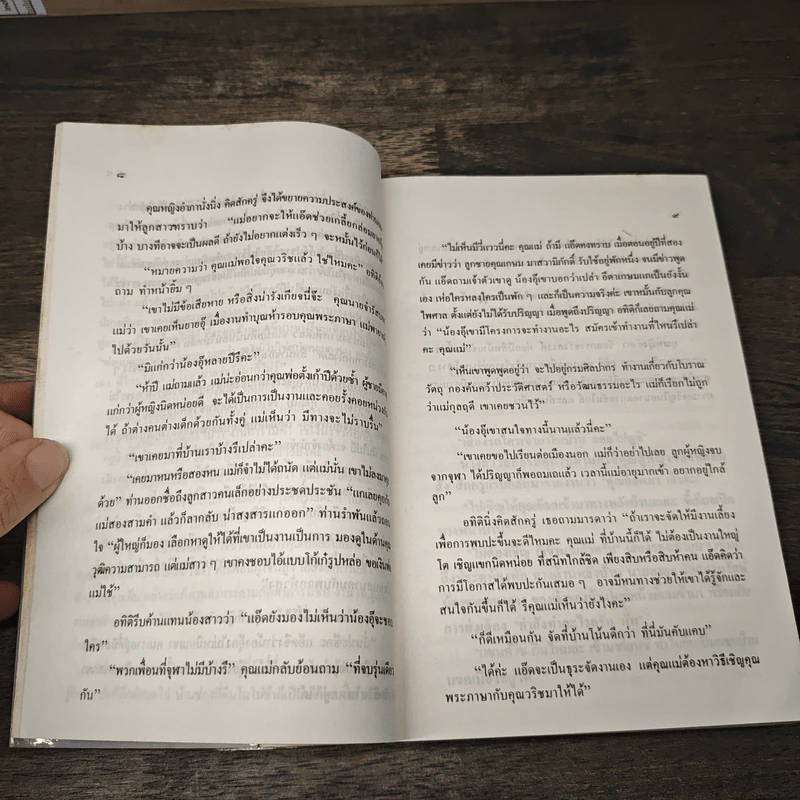 ๘
คุณหญิงอำภานั่งนิ่ง คิดสักครู่ จึงได้ขยายความประสงค์ของท่าน
มาให้ลูกสาวทราบว่า “แม่อยากจะให้แอ๊ดช่วยเกลี้ยกล่อม
บ้าง บางทีอาจจะเป็นผลดี ถ้ายังไม่อยากแต่งเร็ว ๆ จะหมั้นไว้ก่อนก็ได้
“หมายความว่า คุณแม่พอใจคุณวริชแล้ว ใช่ไหมคะ” อทิติ
ถาม ทำหน้ายิ้ม ๆ
“เขาไม่มีข้อเสียหาย หรือสิ่งน่ารังเกียจนี่จ๊ะ คุณนายจำรัส
แม่ว่า เขาเคยเห็นยายอู๊ เมื่องานทำบุญห้ารอบคุณพระภาษา แม่พา
ไปด้วยวันนั้น”
“มิแก่กว่าน้องอู๊หลายปีรึคะ”
“ห้าปี แม่ถามแล้ว แม่น่ะอ่อนกว่าคุณพ่อตั้งเก้าปีด้วยซ้ำ ผู้ชาย
แก่กว่าผู้หญิงนิดหน่อยดี จะได้เป็นการเป็นงานและคอยรั้งคอยหน่วง
ได้ ถ้าต่างคนต่างเด็กด้วยกันทั้งคู่ แม่เห็นว่า มีทางจะไม่ราบรื่น”
“เขาเคยมาที่บ้านเราบ้างรึเปล่าคะ”
“เคยมาหนหรือสองหน แม่ก็จำไม่ได้ถนัด แต่แม่นั่น เขาไม่ลงมา
ด้วย” ท่านออกชื่อถึงลูกสาวคนเล็กอย่างประชดประชัน “แกเลยคุยกับ
แม่สองสามคำ แล้วก็ลากลับ น่าสงสารแกออก” ท่านรำพันแล้วถอน
ใจ “ผู้ใหญ่ก็มอง เลือกหาคู่ให้ได้ที่เขาเป็นงานเป็นการ มองดูในด้าน
วุฒิความสามารถ แต่แม่สาว ๆ เขาคงชอบไอ้แบบโก้เก๋รูปหล่อ ขอเงิน
แม่ใช้”
อทิติรีบค้านแทนน้องสาวว่า “แอ๊ดยังมองไม่เห็นว่าน้องอู๊จะชอบ
ใคร”
“พวกเพื่อนที่จุฬาไม่มีบ้างรึ” คุณแม่กลับย้อนถาม “ที่จบรุ่นเดียว
กัน”
๙
“ไม่เห็นมีวี่แววนี่คะ คุณแม่ ถ้ามี แอ๊ดคงทราบ เมื่อตอนอยู่ปีที่สอง
เคยมีข่าวว่า ลูกชายคุณเกษม มาสวามิภักดิ์ รับใช้อยู่พักหนึ่ง จนมีข่าวพูด
กัน แอ๊ดถามเจ้าตัวเขาดู น้องอู๊เขาบอกว่าเปล่า อีตาเกษมแกเป็นยังงั้น
เอง เห่อใครหลงใครเป็นพัก ๆ และก็เป็นความจริงค่ะ เขาหมั้นกับลูกคุณ
ไพศาล ตั้งแต่ยังไม่ได้รับปริญญา เมื่อพูดถึงปริญญา อทิติก็เลยถามคุณแม่
ว่า “น้องอู๊เขามีโครงการจะทำงานอะไร สมัครเข้าทำงานที่ไหนรึเปล่า
คะ คุณแม่”
“เห็นเขาพูดพูดอยู่ว่า จะไปอยู่กรมศิลปากร ทำงานเกี่ยวกับโบราณ
วัตถุ กองค้นคว้าประวัติศาสตร์ หรือวัฒนธรรมอะไร แม่ก็เรียกไม่ถูก
ว่าแม่กุลฤดี เขาเคยชวนไว้”
“น้องอู๊เขาสนใจทางนี้นานแล้วนี่คะ”
“เขาเคยขอไปเรียนต่อเมืองนอก แม่ก็ว่าอย่าไปเลย ลูกผู้หญิงจบ
จากจุฬา ได้ปริญญาก็พอถมเถแล้ว เวลานี้แม่อายุมากเข้า อยากอยู่ใกล้
ลูก”
อทิตินิ่งคิดสักครู่ เธอถามมารดาว่า “ถ้าเราจะจัดให้มีงานเลี้ยง
เพื่อการพบปะขึ้นจะดีไหมคะ คุณแม่ ที่บ้านนี้ก็ได้ ไม่ต้องเป็นงานใหญ่
โต เชิญแขกนิดหน่อย ที่สนิทใกล้ชิด เพียงสิบหรือสิบห้าคน แอ๊ดคิดว่า
การมีโอกาสได้พบปะกันเสมอ ๆ อาจมีหนทางช่วยให้เขาได้รู้จักและ
สนใจกันขึ้นก็ได้ รึคุณแม่เห็นว่ายังไงคะ”
“ก็ดีเหมือนกัน จัดที่บ้านโน้นดีกว่า ที่นี่มันคับแคบ”
“ได้ค่ะ แอ๊ดจะเป็นธุระจัดงานเอง แต่คุณแม่ต้องหาวิธีเชิญคุณ
พระภาษากับคุณวริชมาให้ได้”